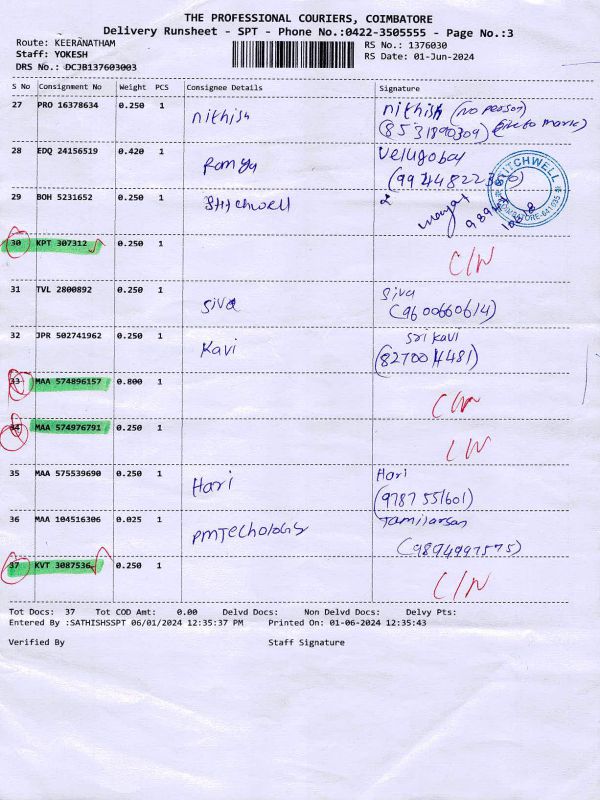 THE PROFESSIONAL COURIERS, COIMBATORE
Delivery Runsheet - SPT - Phone No.:0422-3505555 - Page No.:3
Route: KEERANATHAM
RS No.: 1376030
Staff: YOKESH
RS Date: 01-Jun-2024
DRS No.: DCJB137603003
S No Consignment No Weight PCS Consignee Details Signature
27 PRO 16378634 0.250 1 nithish nithish (no person)
(8531890309)
28 EDQ 24156519 0.420 1 Ramya Velugobay
(9944822
29 BOH 5231652 0.250 1 Stitchwell
STITCHWELL
COIMBATORE-641035
30 KPT 307312 0.250 1 C/N
31 TVL 2800892 0.250 1 siva siva
(9600660614)
32 JPR 502741962 0.250 1 Kavi Sri kavi
(8270014481)
33 MAA 574896157 0.800 1 C/N
34 MAA 574976791 0.250 1 C/N
35 MAA 575539690 0.250 1 Hari Hari
(9787551601)
36 MAA 104516306 0.025 1 PMTechologis Tamilarsan
(9894997575)
37 KVT 3087536 0.250 1 C/N
Tot Docs: 37 Tot COD Amt: 0.00 Delvd Docs: Non Delvd Docs: Delvy Pts:
Entered By :SATHISHSSPT 06/01/2024 12:35:37 PM Printed On: 01-06-2024 12:35:43
Verified By Staff Signature